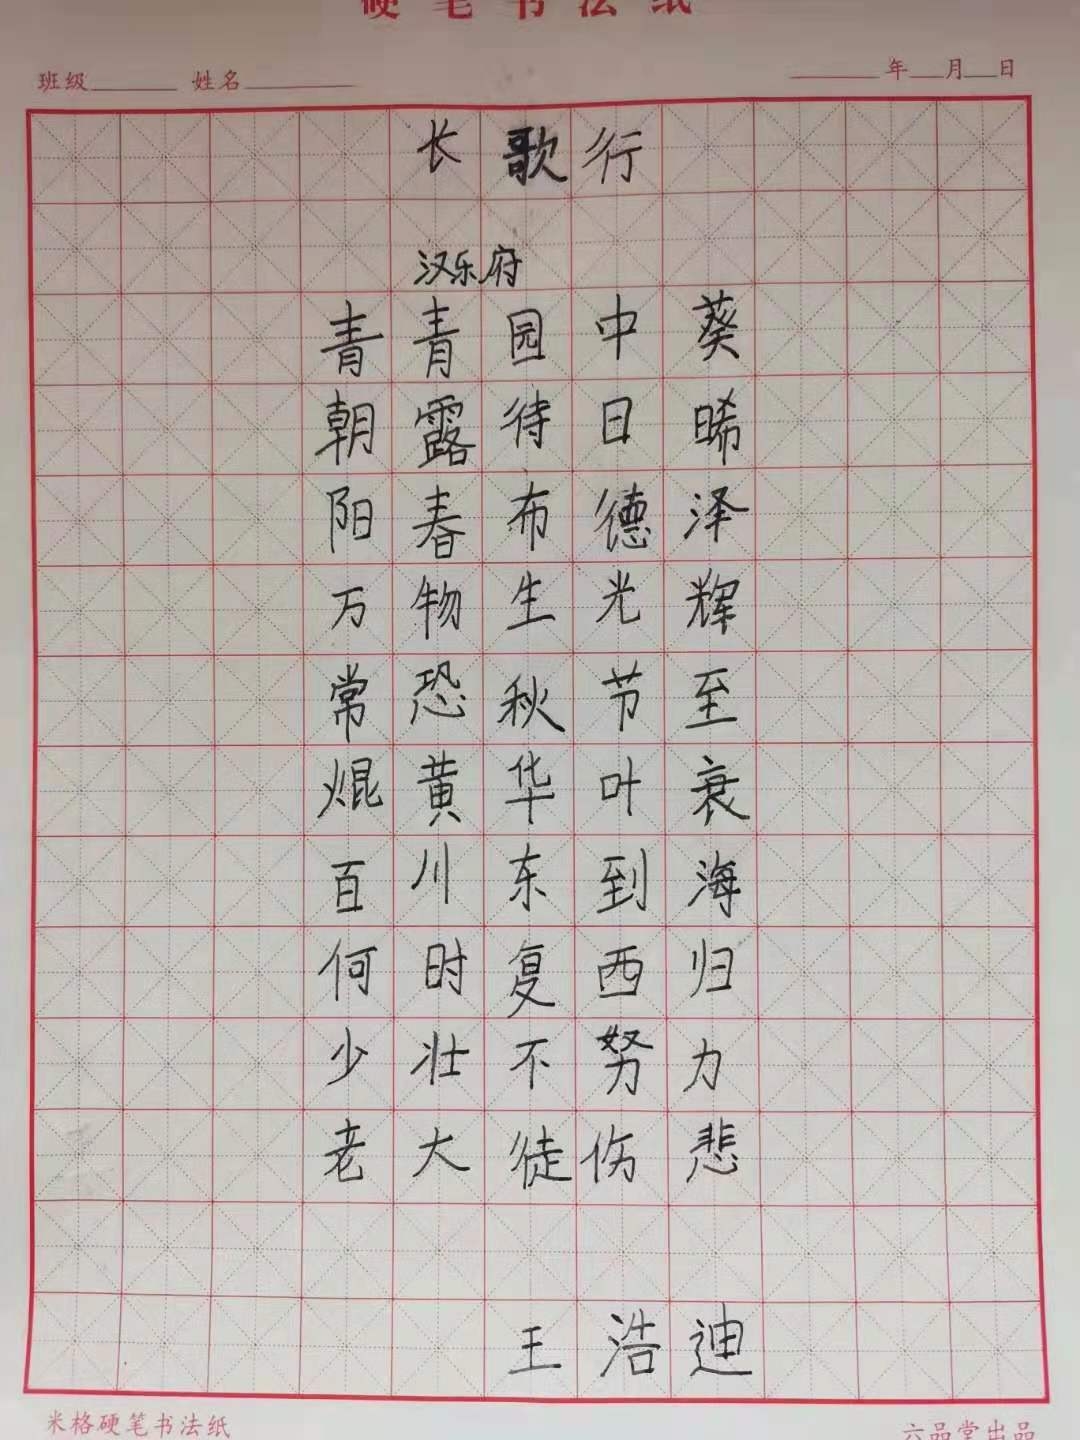 硬笔书法纸
班级 姓名 年 月 日
长歌行
汉乐府
青青园中葵
朝露待日晞
阳春布德泽
万物生光辉
常恐秋节至
焜黄华叶衰
百川东到海
何时复西归
少壮不努力
老大徒伤悲
王浩迪
米格硬笔书法纸 六品堂出品